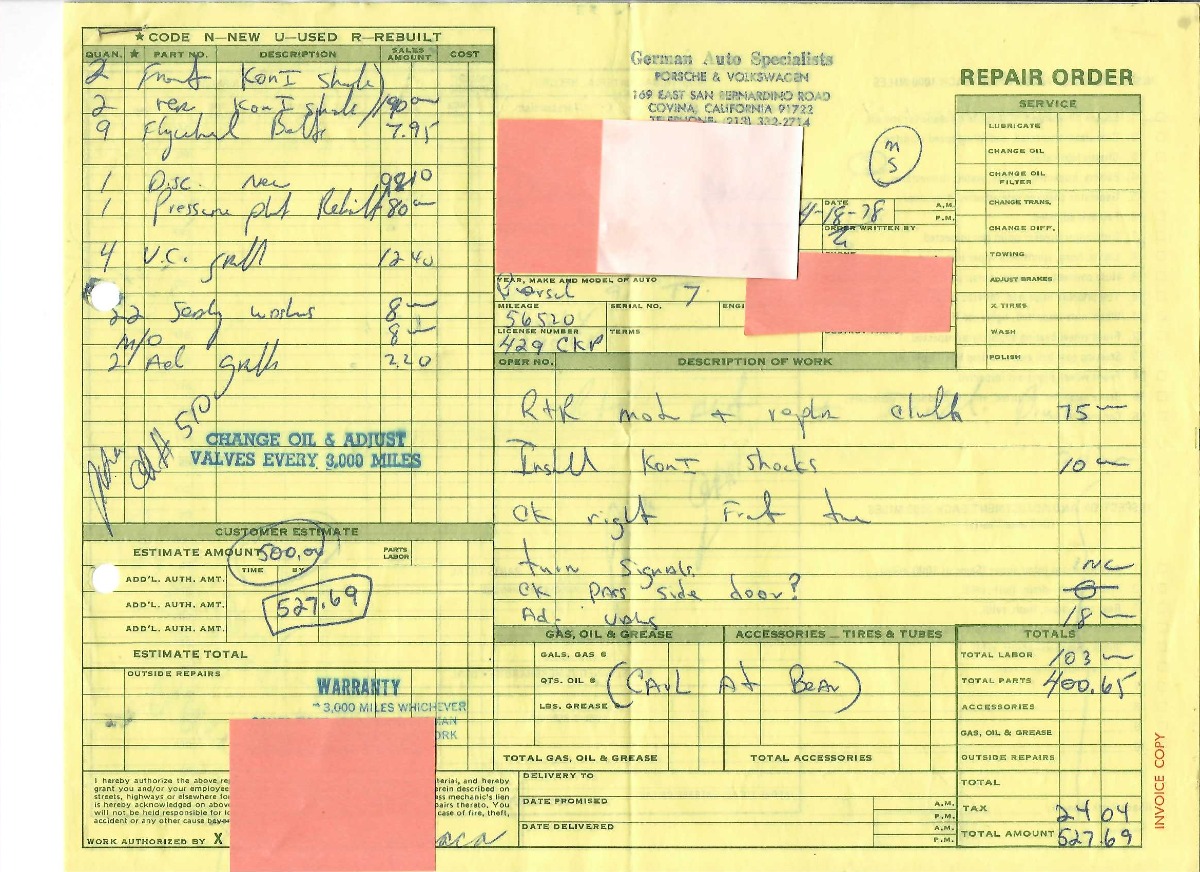 ★ CODE N—NEW U—USED R—REBUILT
QUAN. ★ PART NO. DESCRIPTION SALES AMOUNT COST
2 Front KONI
2 KONI 190
9 Flywheel Bolts 7.95
1 Disc. New 9810
1 Pressure plat Rebuilt 80
4 V.C. 1240
22 washers 8
M/O 8
2 220
CHANGE OIL & ADJUST
VALVES EVERY 3,000 MILES
John
510
CUSTOMER ESTIMATE
ESTIMATE AMOUNT 500.00 PARTS LABOR
TIME BY
ADD'L. AUTH. AMT.
ADD'L. AUTH. AMT. 527.69
ADD'L. AUTH. AMT.
ESTIMATE TOTAL
OUTSIDE REPAIRS
WARRANTY
3,000 MILES WHICHEVER
I hereby authorize the above
grant you and/or your employee
streets, highways or elsewhere
is hereby acknowledged on above
will not be held responsible for
accident or any other cause
terial, and hereby
described on
mechanic's lien
thereto. You
case of fire, theft,
WORK AUTHORIZED BY X
German Auto Specialists
PORSCHE & VOLKSWAGEN
169 EAST SAN BERNARDINO ROAD
COVINA, CALIFORNIA 91722
TELEPHONE: (213) 332-2714
M
S
DATE 4-18-78 A.M.
P.M.
ORDER WRITTEN BY
YEAR, MAKE AND MODEL OF AUTO
MILEAGE SERIAL NO.
56520
LICENSE NUMBER TERMS
429 CKP
OPER NO. DESCRIPTION OF WORK
R+R mot + clutch 75
Install KONI Shocks 10
CK right Front
turn signals NC
CK pass side door?
Ad. 18
REPAIR ORDER
SERVICE
LUBRICATE
CHANGE OIL
CHANGE OIL FILTER
CHANGE TRANS.
CHANGE DIFF.
TOWING
ADJUST BRAKES
X TIRES
WASH
POLISH
GAS, OIL & GREASE ACCESSORIES — TIRES & TUBES TOTALS
GALS. GAS @
QTS. OIL @
LBS. GREASE
TOTAL GAS, OIL & GREASE TOTAL ACCESSORIES
TOTAL LABOR 103
TOTAL PARTS 400.65
ACCESSORIES
GAS, OIL & GREASE
OUTSIDE REPAIRS
TOTAL
TAX 24 04
TOTAL AMOUNT 527.69
DELIVERY TO
DATE PROMISED A.M.
P.M.
DATE DELIVERED A.M.
P.M.
INVOICE COPY